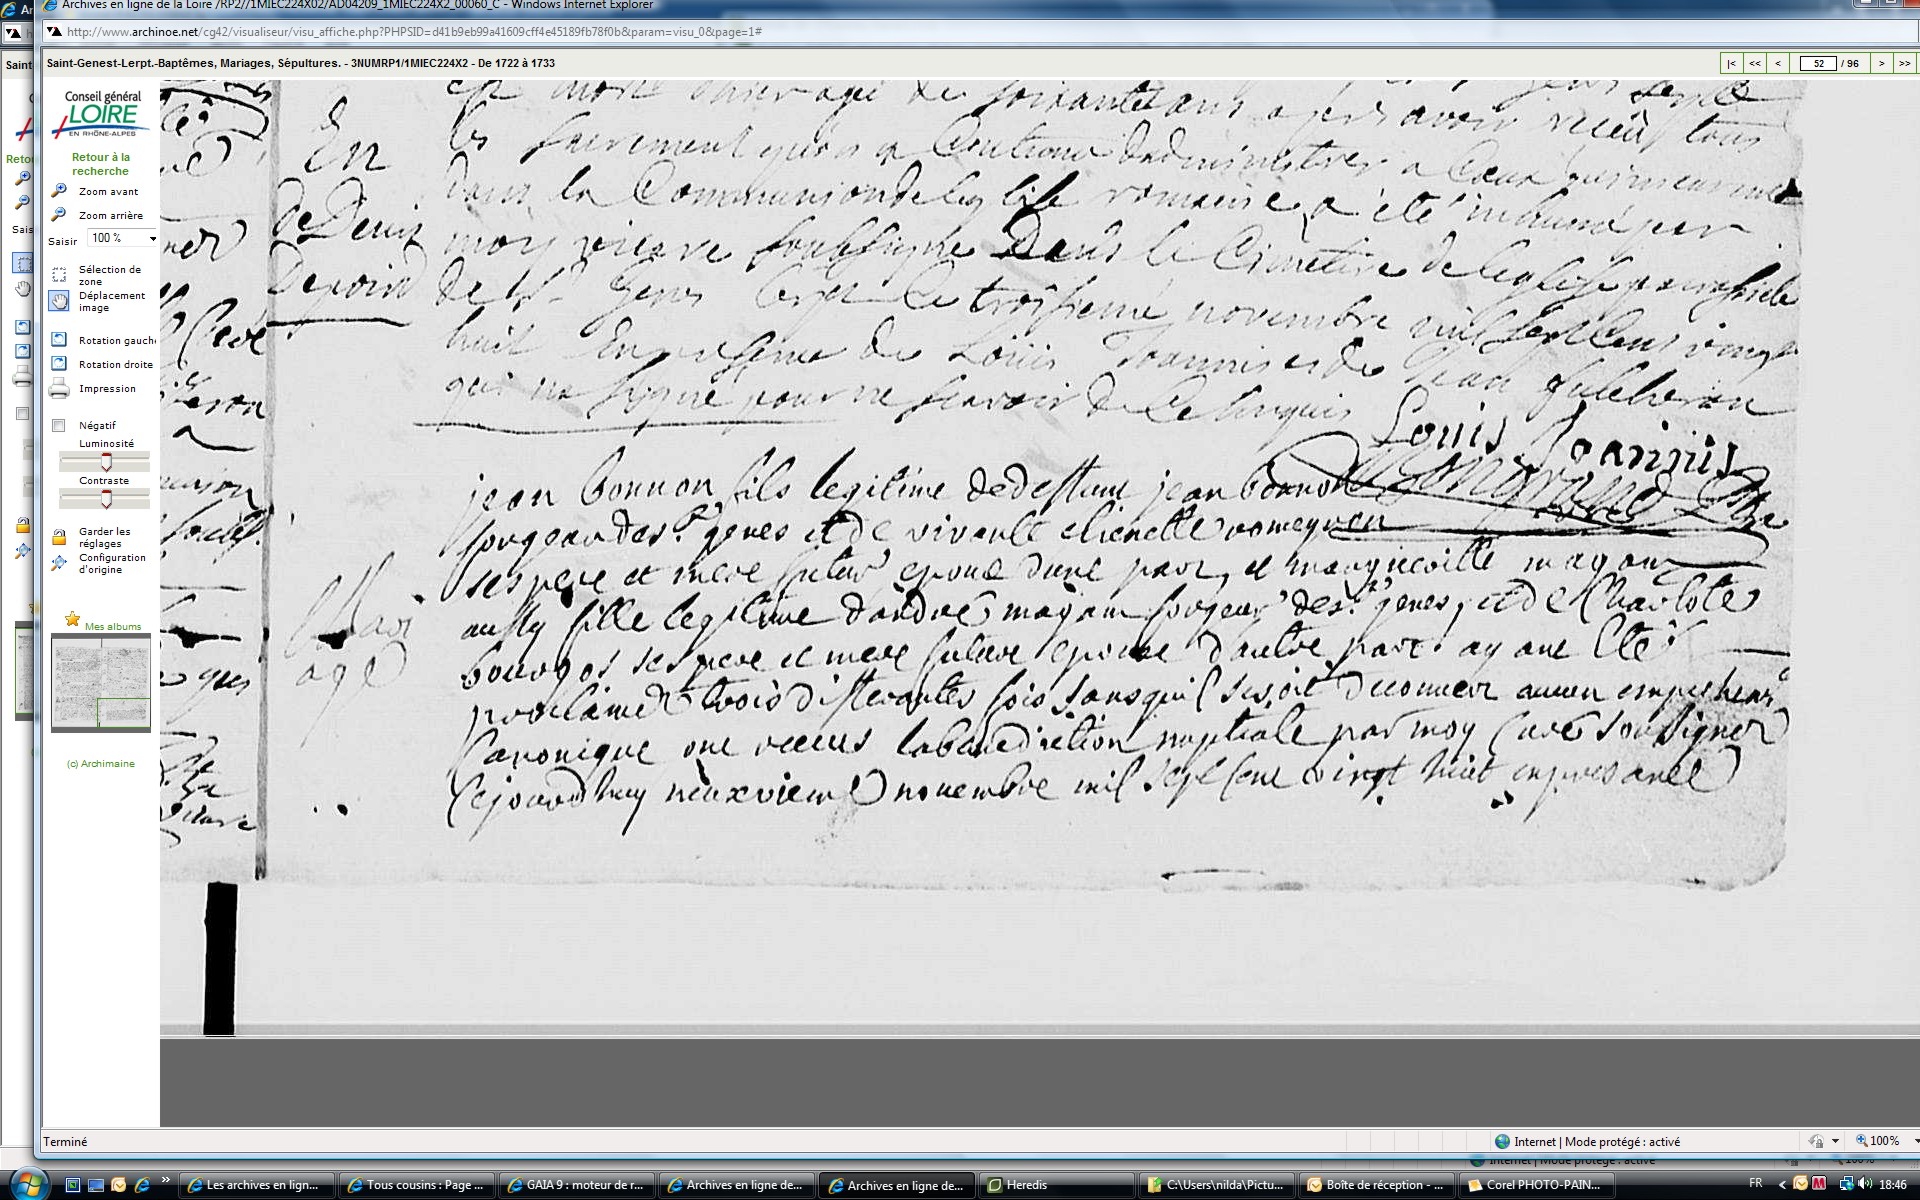 Archives en ligne de la Loire /RP2//1MIEC224X02/AD04209_1MIEC224X2_00060_C - Windows Internet Explorer
http://www.archinoe.net/cg42/visualiseur/visu_affiche.php?PHPSID=d41b9eb99a41609cff4e45189fb78f0b&param=visu_0&page=1#
Saint-Genest-Lerpt.-Baptêmes, Mariages, Sépultures. - 3NUMRP1/1MIEC224X2 - De 1722 à 1733
|< << < 52 / 96 > >>
Conseil général
LOIRE
EN RHÔNE-ALPES
Retour à la
recherche
Zoom avant
Zoom arrière
Saisir 100 %
Sélection de
zone
Déplacement
image
Rotation gauch
Rotation droite
Impression
Négatif
Luminosité
Contraste
Garder les
réglages
Configuration
d'origine
Mes albums
(c) Archimaine
En
de Denis
Devoin
soixante ans apres avoir receu tous
les sacrement quon a Coutume dadministrer a Ceux qui meurent
dans la Communion de leglise romaine a été inhumé par
moy vicaire soussigne Dans le Cimetiere de leglise parroissiale
de St Genes Lerpt Le troisieme novembre mil sept Cens vingt
huit En presence de Louis Joannis et de Jean
qui na signé pour ne scavoir de Ce Enquis
Louis Joannis
jean bonnon fils legitime de deffunt jean bonnon
forgeur de st genes et de vivante etienette romeyer
ses pere et mere futur epoux dune part, et margueritte mayam
aussy fille legitime dandré mayam forgeur de st genes, et de Charlote
bourgos ses pere et mere future epouse dautre part. ayant Eté
proclamez trois differantes fois sans quil se soit decouvert aucun empechent
Canonique ont receus la benediction nuptiale par moy Curé soussigner
Cejourdhuy neuxvieme novembre mil sept cent vingt huit en presance
Mari
age
Terminé
Internet | Mode protégé : activé
100%
Les archives en lign...
Tous cousins : Page ...
GAIA 9 : moteur de r...
Archives en ligne de...
Archives en ligne de...
Heredis
C:\Users\nilda\Pictu...
Boîte de réception - ...
Corel PHOTO-PAIN...
FR
18:46